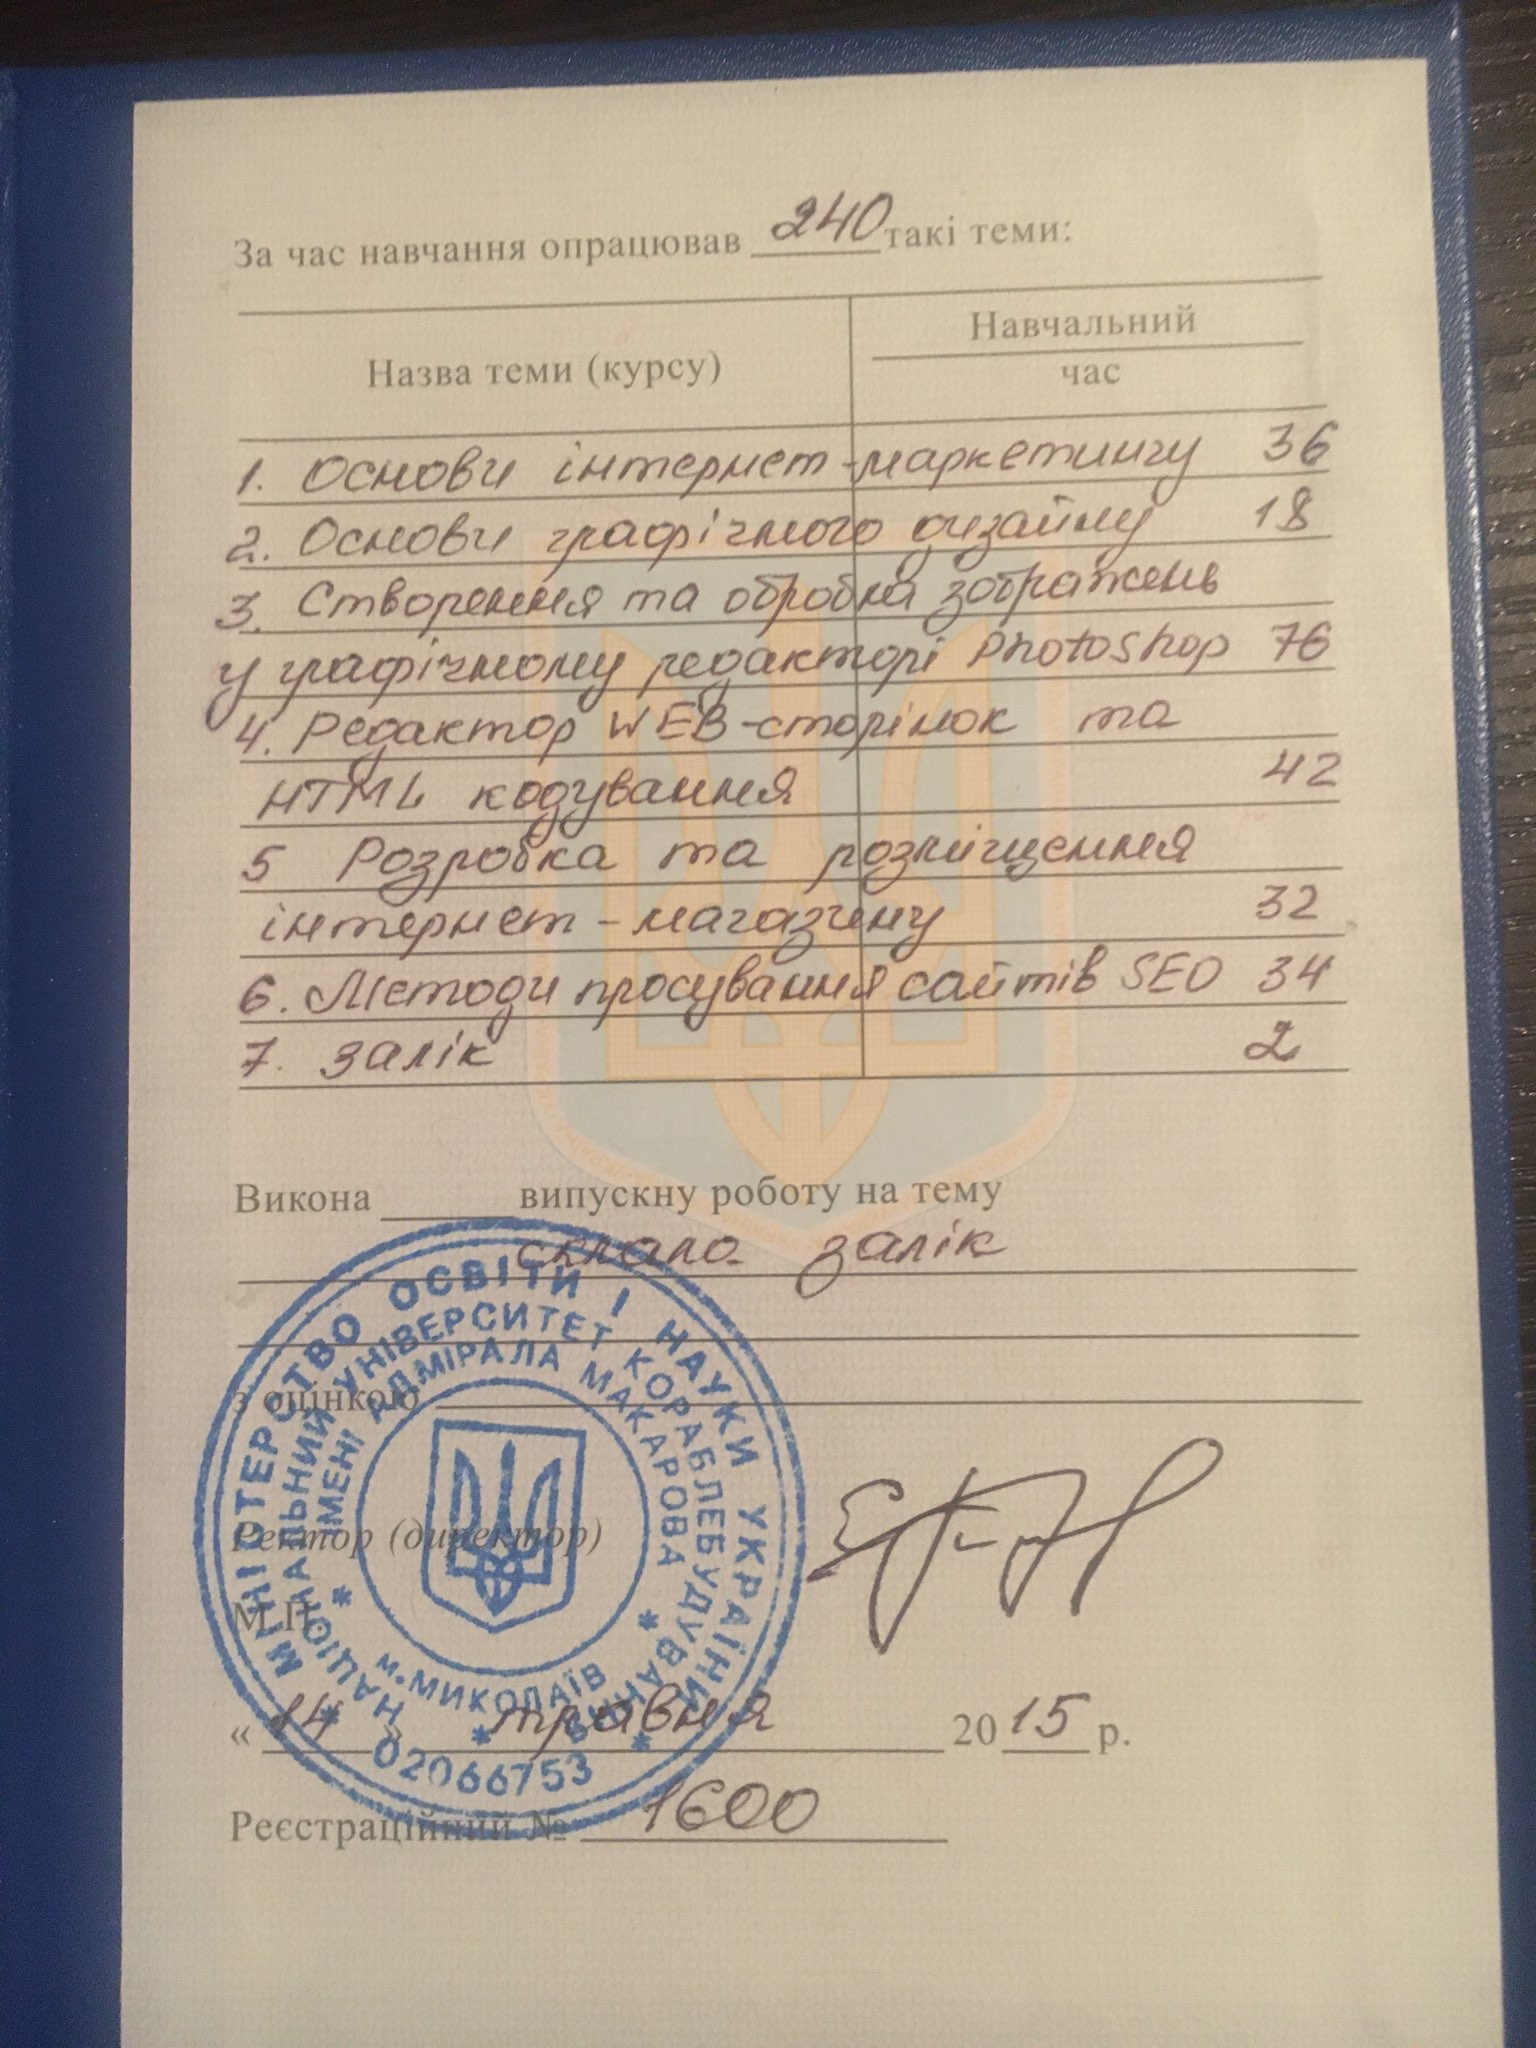 За час навчання опрацював 240 такі теми:
Назва теми (курсу)
Навчальний
час
1. Основи інтернет-маркетингу 36
2. Основи графічного дизайну 18
3. Створення та обробка зображень
у графічному редакторі Photoshop 76
4. Редактор WEB-сторінок та
HTML кодування 42
5 Розробка та розміщення
інтернет-магазину 32
6. Методи просування сайтів SEO 34
7. залік 2
Викона випускну роботу на тему
склала залік
з оцінкою
Ректор (директор)
М.П.
« 14 » травня 2015 р.
Реєстраційний № 1600
МІНІСТЕРСТВО ОСВІТИ І НАУКИ УКРАЇНИ
НАЦІОНАЛЬНИЙ УНІВЕРСИТЕТ КОРАБЛЕБУДУВАННЯ
ІМЕНІ АДМІРАЛА МАКАРОВА
м.МИКОЛАЇВ
* 02066753 *